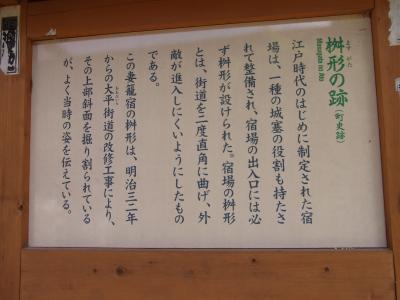 桝形の跡(町史跡)
ますがた あと
Masugata no Ato
江戸時代のはじめに制定された宿
場は、一種の城塞の役割も持たさ
れて整備され、宿場の出入口には必
ず桝形が設けられた。宿場の桝形
とは、街道を二度直角に曲げ、外
敵が進入しにくいようにしたもの
である。
この妻籠宿の桝形は、明治三二年
からの大平街道の改修工事により、
おおだいら
その上部斜面を掘り割られている
が、よく当時の姿を伝えている。